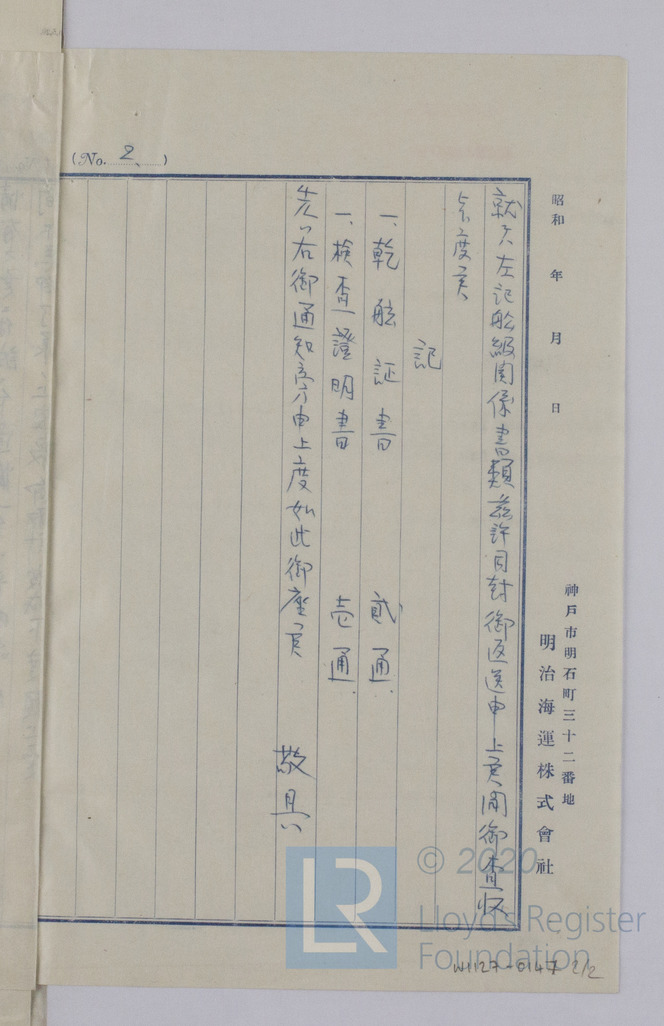 (No. 2)
昭和　年　月　日
神戸市明石町三十二番地
明治海運株式會社
就テハ左記舩級関係書類茲許同封御返送申上候間御査収
被下度候
記
一、乾舷証書　貳通
一、検査證明書　壱通
先ハ右御通知旁々申上度如此御座候
敬具
© 2020
Lloyd's Register
Foundation
LR
W1127-0147 2/2